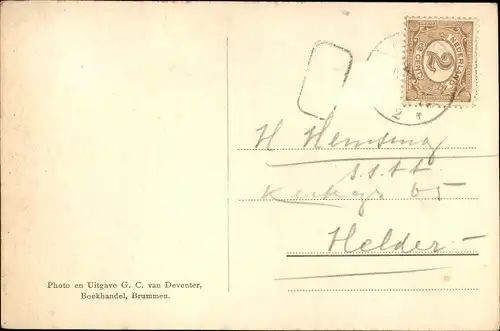 NEDERLAND
2
CENT
H Hemsing
s.s.t.t.
65
Helder
Photo en Uitgave G. C. van Deventer,
Boekhandel, Brummen.